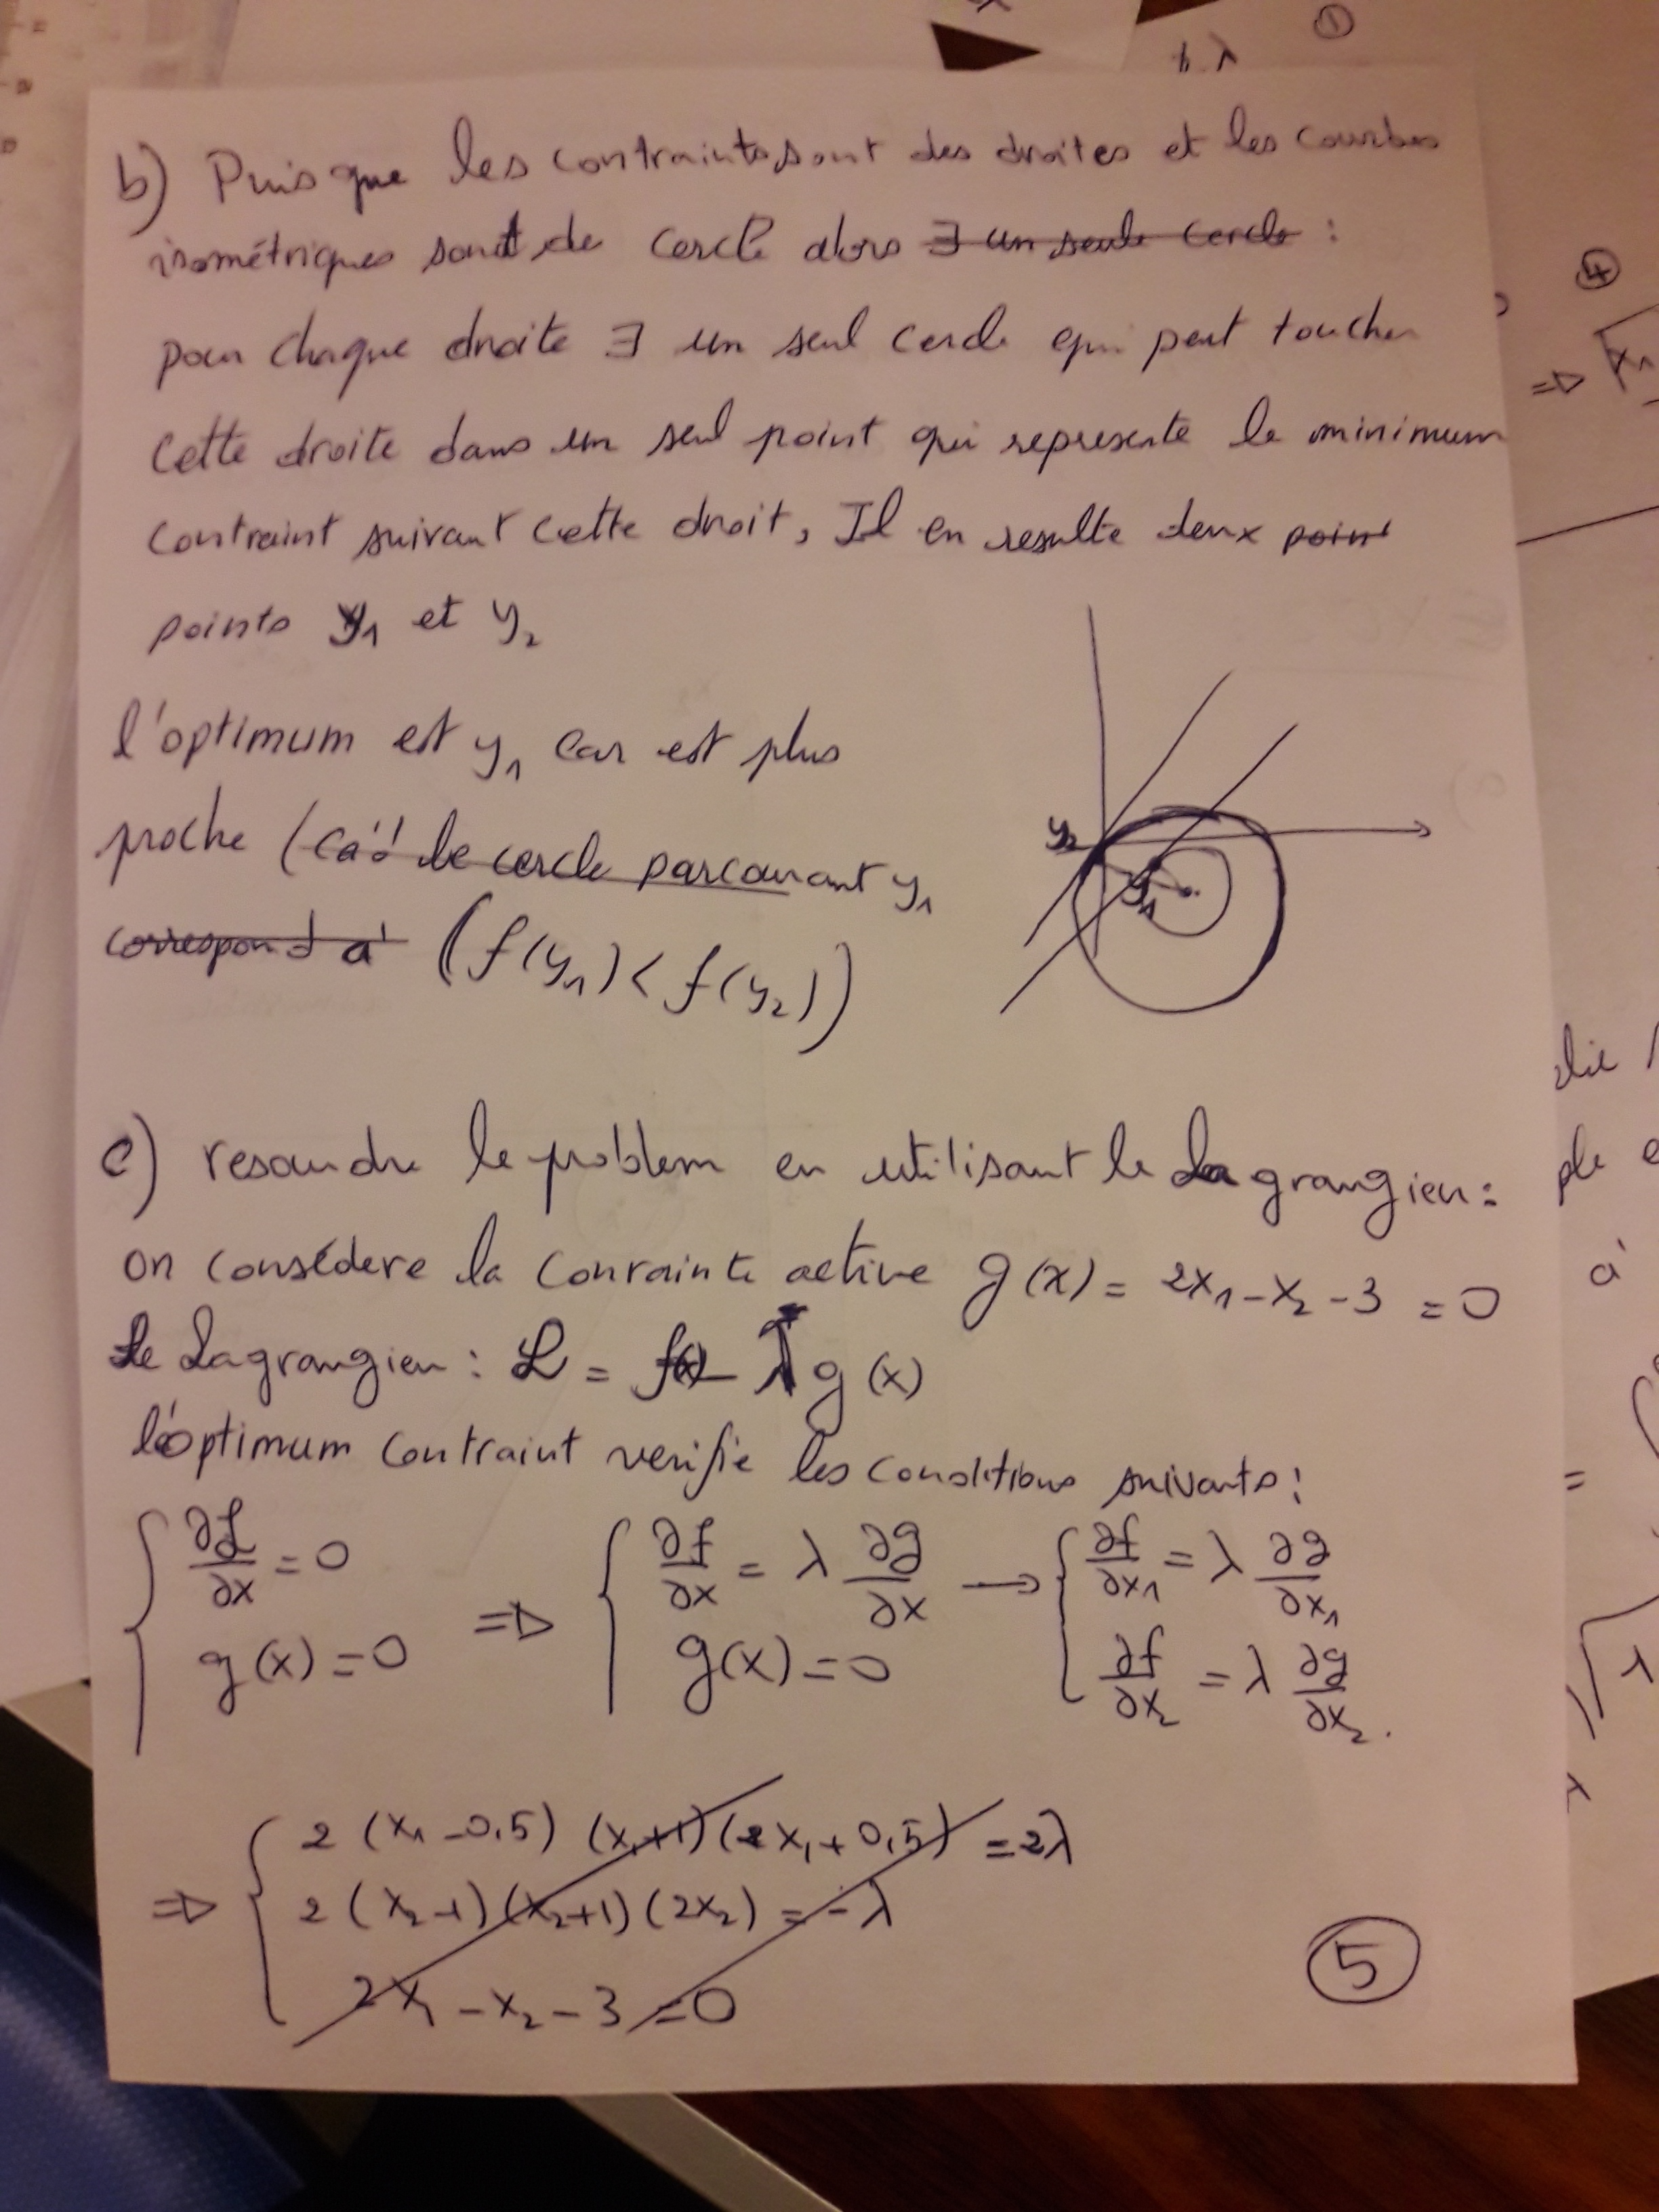 b) Puisque les contraintes sont des droites et les courbes
isométriques sont de cercle alors ∃ un seule cercle :
pour chaque droite ∃ un seul cercle qui peut toucher
cette droite dans un seul point qui represente le minimum
contraint suivant cette droit, Il en resulte deux point
points y₁ et y₂
l'optimum est y₁ car est plus
proche (càd le cercle parcourant y₁
correspond à (f(y₁) < f(y₂))
y₂
y₁
c) resoudre le problem en utilisant le Lagrangien :
on consédere la conrainte active g(x) = 2x₁ - x₂ - 3 = 0
Le Lagrangien : ℒ = f(x) - λ g(x)
l'optimum contraint verifie les conditions suivants :
{ ∂ℒ/∂x = 0 ⇒ { ∂f/∂x = λ ∂g/∂x → { ∂f/∂x₁ = λ ∂g/∂x₁
g(x) = 0 g(x) = 0 ∂f/∂x₂ = λ ∂g/∂x₂ .
⇒ { 2 (x₁ - 0,5) (x₁+1) (2x₁ + 0,5) = 2λ
2 (x₂-1) (x₂+1) (2x₂) = -λ
2x₁ - x₂ - 3 = 0
5
1
4
⇒ x₁
à
=
λ